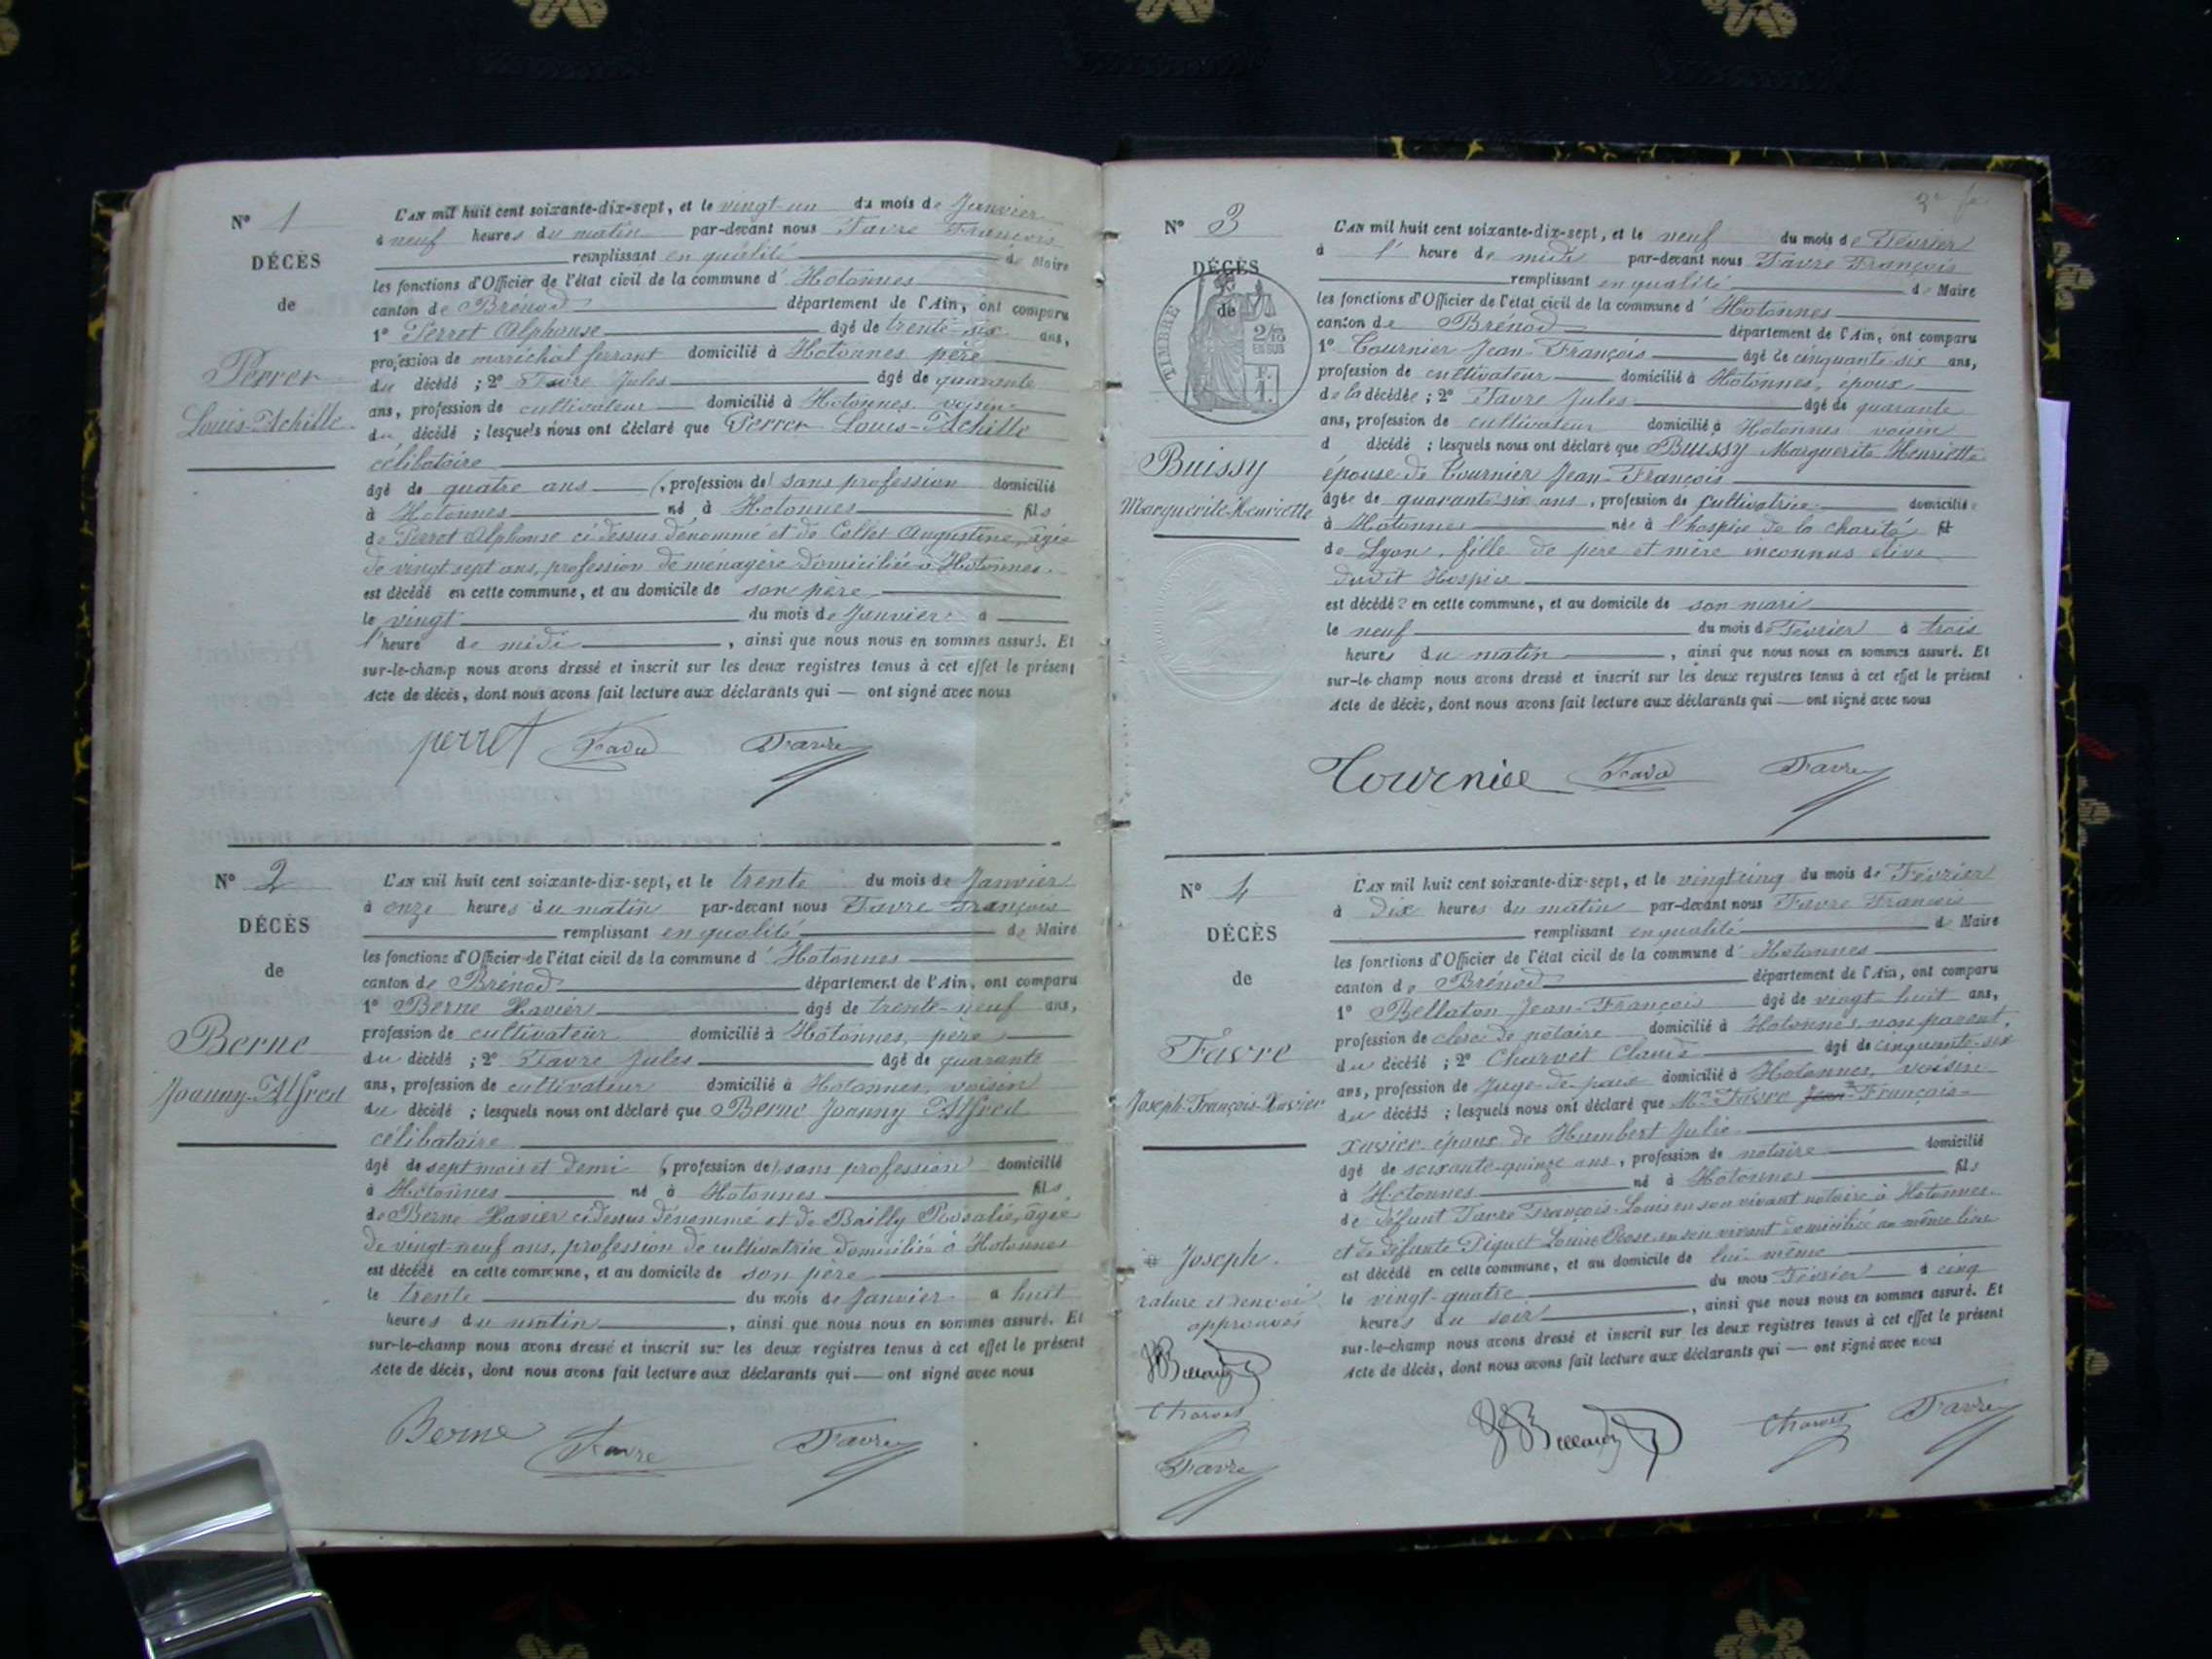 N° 1
DÉCÈS
de
Perret
Louis-Achille
L'AN mil huit cent soixante-dix-sept, et le vingt-un du mois de Janvier
à neuf heures du matin par-devant nous Favre François
remplissant en qualité de Maire
les fonctions d'Officier de l'état civil de la commune d' Hotonnes
canton de Brénod département de l'Ain, ont comparu
1° Perret Alphonse âgé de trente-six ans,
profession de maréchal ferrant domicilié à Hotonnes père
du décédé ; 2° Favre Jules âgé de quarante
ans, profession de cultivateur domicilié à Hotonnes voisin
du décédé ; lesquels nous ont déclaré que Perret Louis-Achille
célibataire
âgé de quatre ans (, profession de) sans profession domicilié
à Hotonnes né à Hotonnes fils
de Perret Alphonse ci dessus dénommé et de Collet Augustine, âgée
de vingt sept ans, profession de ménagère domiciliée à Hotonnes
est décédé en cette commune, et au domicile de son père
le vingt du mois de Janvier à
l'heure de midi, ainsi que nous nous en sommes assuré. Et
sur-le-champ nous avons dressé et inscrit sur les deux registres tenus à cet effet le présent
Acte de décès, dont nous avons fait lecture aux déclarants qui — ont signé avec nous
perret Favre Favre
N° 2
DÉCÈS
de
Berne
Joanny-Alfred
L'AN mil huit cent soixante-dix-sept, et le trente du mois de Janvier
à onze heures du matin par-devant nous Favre François
remplissant en qualité de Maire
les fonctions d'Officier de l'état civil de la commune d' Hotonnes
canton de Brénod département de l'Ain, ont comparu
1° Berne Xavier âgé de trente-neuf ans,
profession de cultivateur domicilié à Hotonnes, père
du décédé ; 2° Favre Jules âgé de quarante
ans, profession de cultivateur domicilié à Hotonnes, voisin
du décédé ; lesquels nous ont déclaré que Berne Joanny Alfred
célibataire
âgé de sept mois et demi (, profession de) sans profession domicilié
à Hotonnes né à Hotonnes fils
de Berne Xavier ci dessus dénommé et de Bailly Rosalie, âgée
de vingt-neuf ans, profession de cultivatrice domiciliée à Hotonnes
est décédé en cette commune, et au domicile de son père
le trente du mois de Janvier à huit
heures du matin, ainsi que nous nous en sommes assuré. Et
sur-le-champ nous avons dressé et inscrit sur les deux registres tenus à cet effet le présent
Acte de décès, dont nous avons fait lecture aux déclarants qui — ont signé avec nous
Berne Favre Favre
N° 3
DÉCÈS
de
TIMBRE
2/10
EN SUS
F.
1.
Buissy
Marguerite-Henriette
L'AN mil huit cent soixante-dix-sept, et le neuf du mois de Février
à l' heure de midi par-devant nous Favre François
remplissant en qualité de Maire
les fonctions d'Officier de l'état civil de la commune d' Hotonnes
canton de Brénod département de l'Ain, ont comparu
1° Tournier Jean-François âgé de cinquante-six ans,
profession de cultivateur domicilié à Hotonnes, époux
de la décédée ; 2° Favre Jules âgé de quarante
ans, profession de cultivateur domicilié à Hotonnes voisin
d décédé ; lesquels nous ont déclaré que Buissy Marguerite-Henriette
épouse de Tournier Jean-François
âgée de quarante-six ans, profession de cultivatrice domiciliée
à Hotonnes née à l'hospice de la charité
de Lyon, fille de père et mère inconnus élève
dudit Hospice
est décédée en cette commune, et au domicile de son mari
le neuf du mois de Février à trois
heures du matin, ainsi que nous nous en sommes assuré. Et
sur-le-champ nous avons dressé et inscrit sur les deux registres tenus à cet effet le présent
Acte de décès, dont nous avons fait lecture aux déclarants qui — ont signé avec nous
Tournier Favre Favre
N° 4
DÉCÈS
de
Favre
Joseph-François-Xavier
Joseph.
rature et renvoi
approuvés
Charvet
Favre
L'AN mil huit cent soixante-dix-sept, et le vingt cinq du mois de Février
à dix heures du matin par-devant nous Favre François
remplissant en qualité de Maire
les fonctions d'Officier de l'état civil de la commune d' Hotonnes
canton de Brénod département de l'Ain, ont comparu
1° Bellaton Jean-François âgé de vingt-huit ans,
profession de clerc de notaire domicilié à Hotonnes, non parent
du décédé ; 2° Charvet Claude âgé de cinquante-six
ans, profession de Juge-de-paix domicilié à Hotonnes, voisin
du décédé ; lesquels nous ont déclaré que Mr Favre Jean-François-
Xavier époux de Humbert Julie
âgé de soixante-quinze ans, profession de notaire domicilié
à Hotonnes né à Hotonnes fils
de défunt Favre François-Louis en son vivant notaire à Hotonnes
et de défunte Piquet Louise Rose, en son vivant domiciliée au même lieu
est décédé en cette commune, et au domicile de lui-même
le vingt-quatre du mois Février à cinq
heures du soir, ainsi que nous nous en sommes assuré. Et
sur-le-champ nous avons dressé et inscrit sur les deux registres tenus à cet effet le présent
Acte de décès, dont nous avons fait lecture aux déclarants qui — ont signé avec nous
Charvet Favre